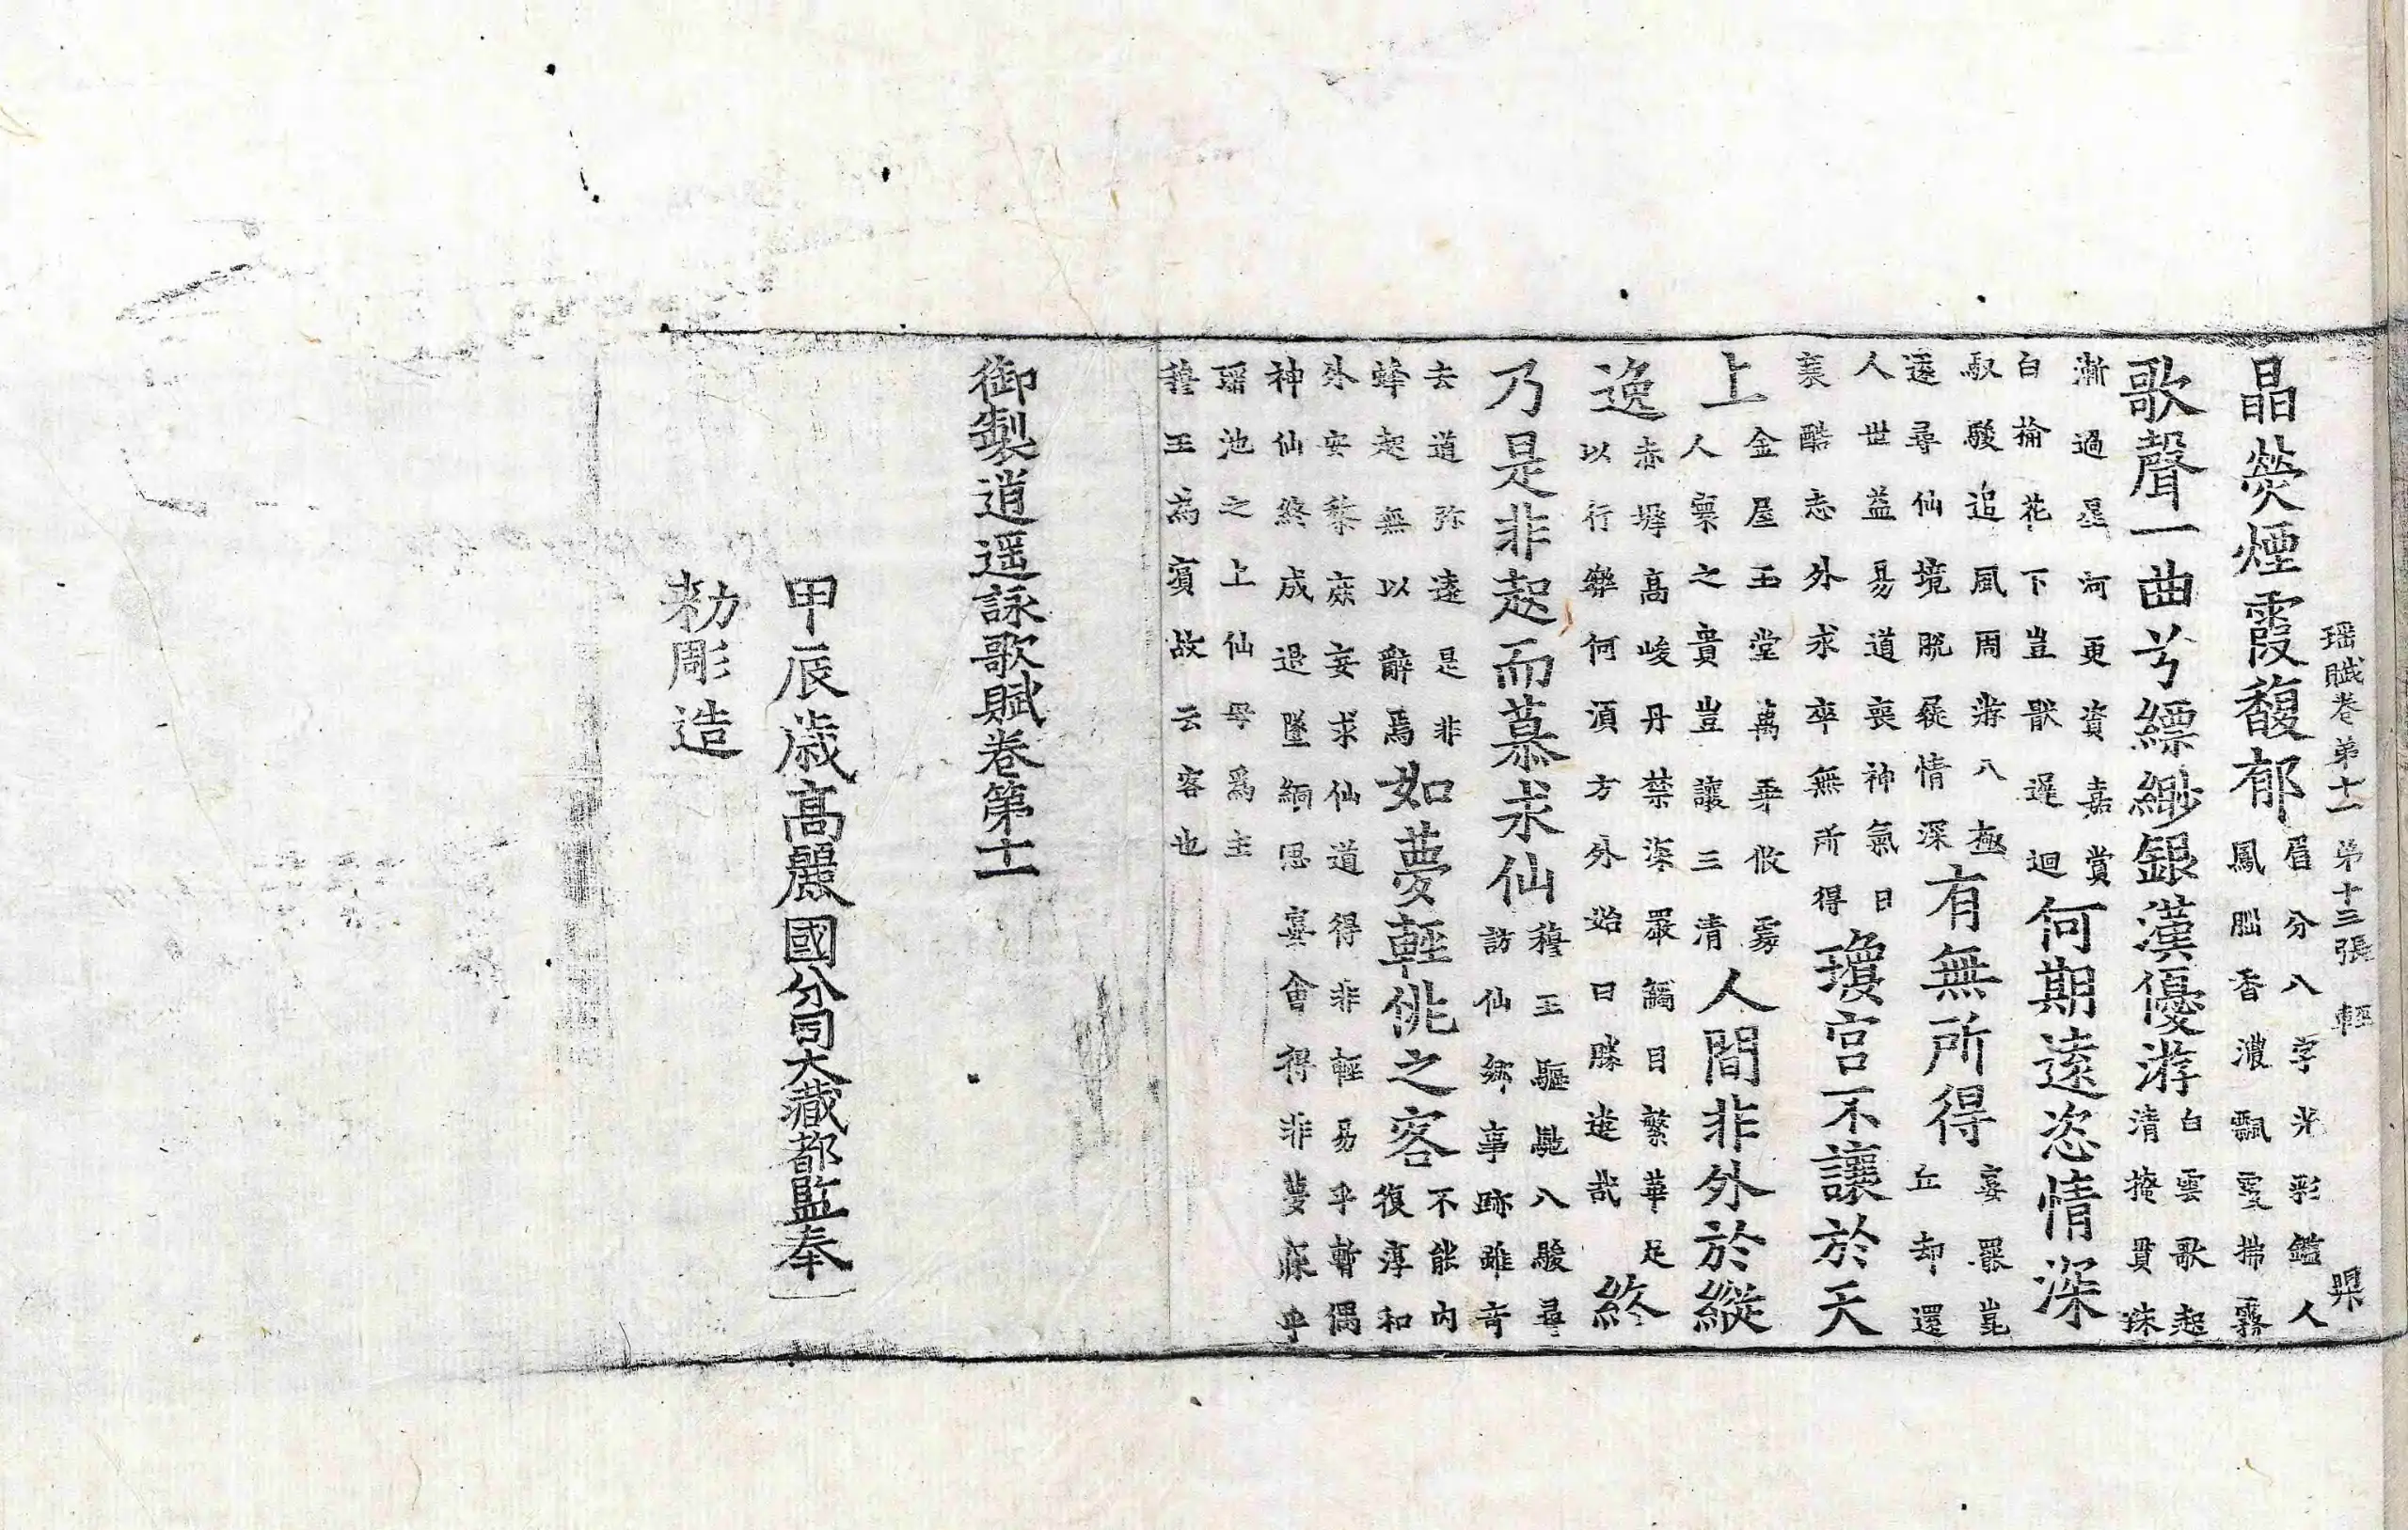 瑶賦卷第十一 第十三張 輕
晶熒煙霞馥郁眉分八字光彩鑑人鳳腦香濃飄雯拂霧
歌聲一曲兮縹緲銀漢優游白雲歌起清掩貫珠
漸過星河更資嘉賞白榆花下豈猒遲迴何期遠恣情深
馭駿追風周游八極遂尋仙境脫屣情深有無所得妄羅崑丘却還
人世益易道喪神氣日襄酷志外求卒無所得瓊宮不讓於天
上金屋玉堂萬乘攸處人寰之貴豈讓三清人間非外於縱
逸赤墀高峻丹禁深嚴觸目繁華足以行樂何湏方外始曰勝遊哉終
乃是非起而慕求仙穆王驅馳八駿尋訪仙鄉事跡雖奇
去道弥遠是非蜂起無以辭焉如夢輕佻之客不能內復淳和
外安黎庶妄求仙道得非輕易乎暫偶神仙終成退墜緬思宴會得非夢寐乎
瑶池之上仙母爲主穆王為賓故云客也
御製逍遥詠歌賦卷第十一
甲辰歳高麗國分司大藏都監奉
勑彫造